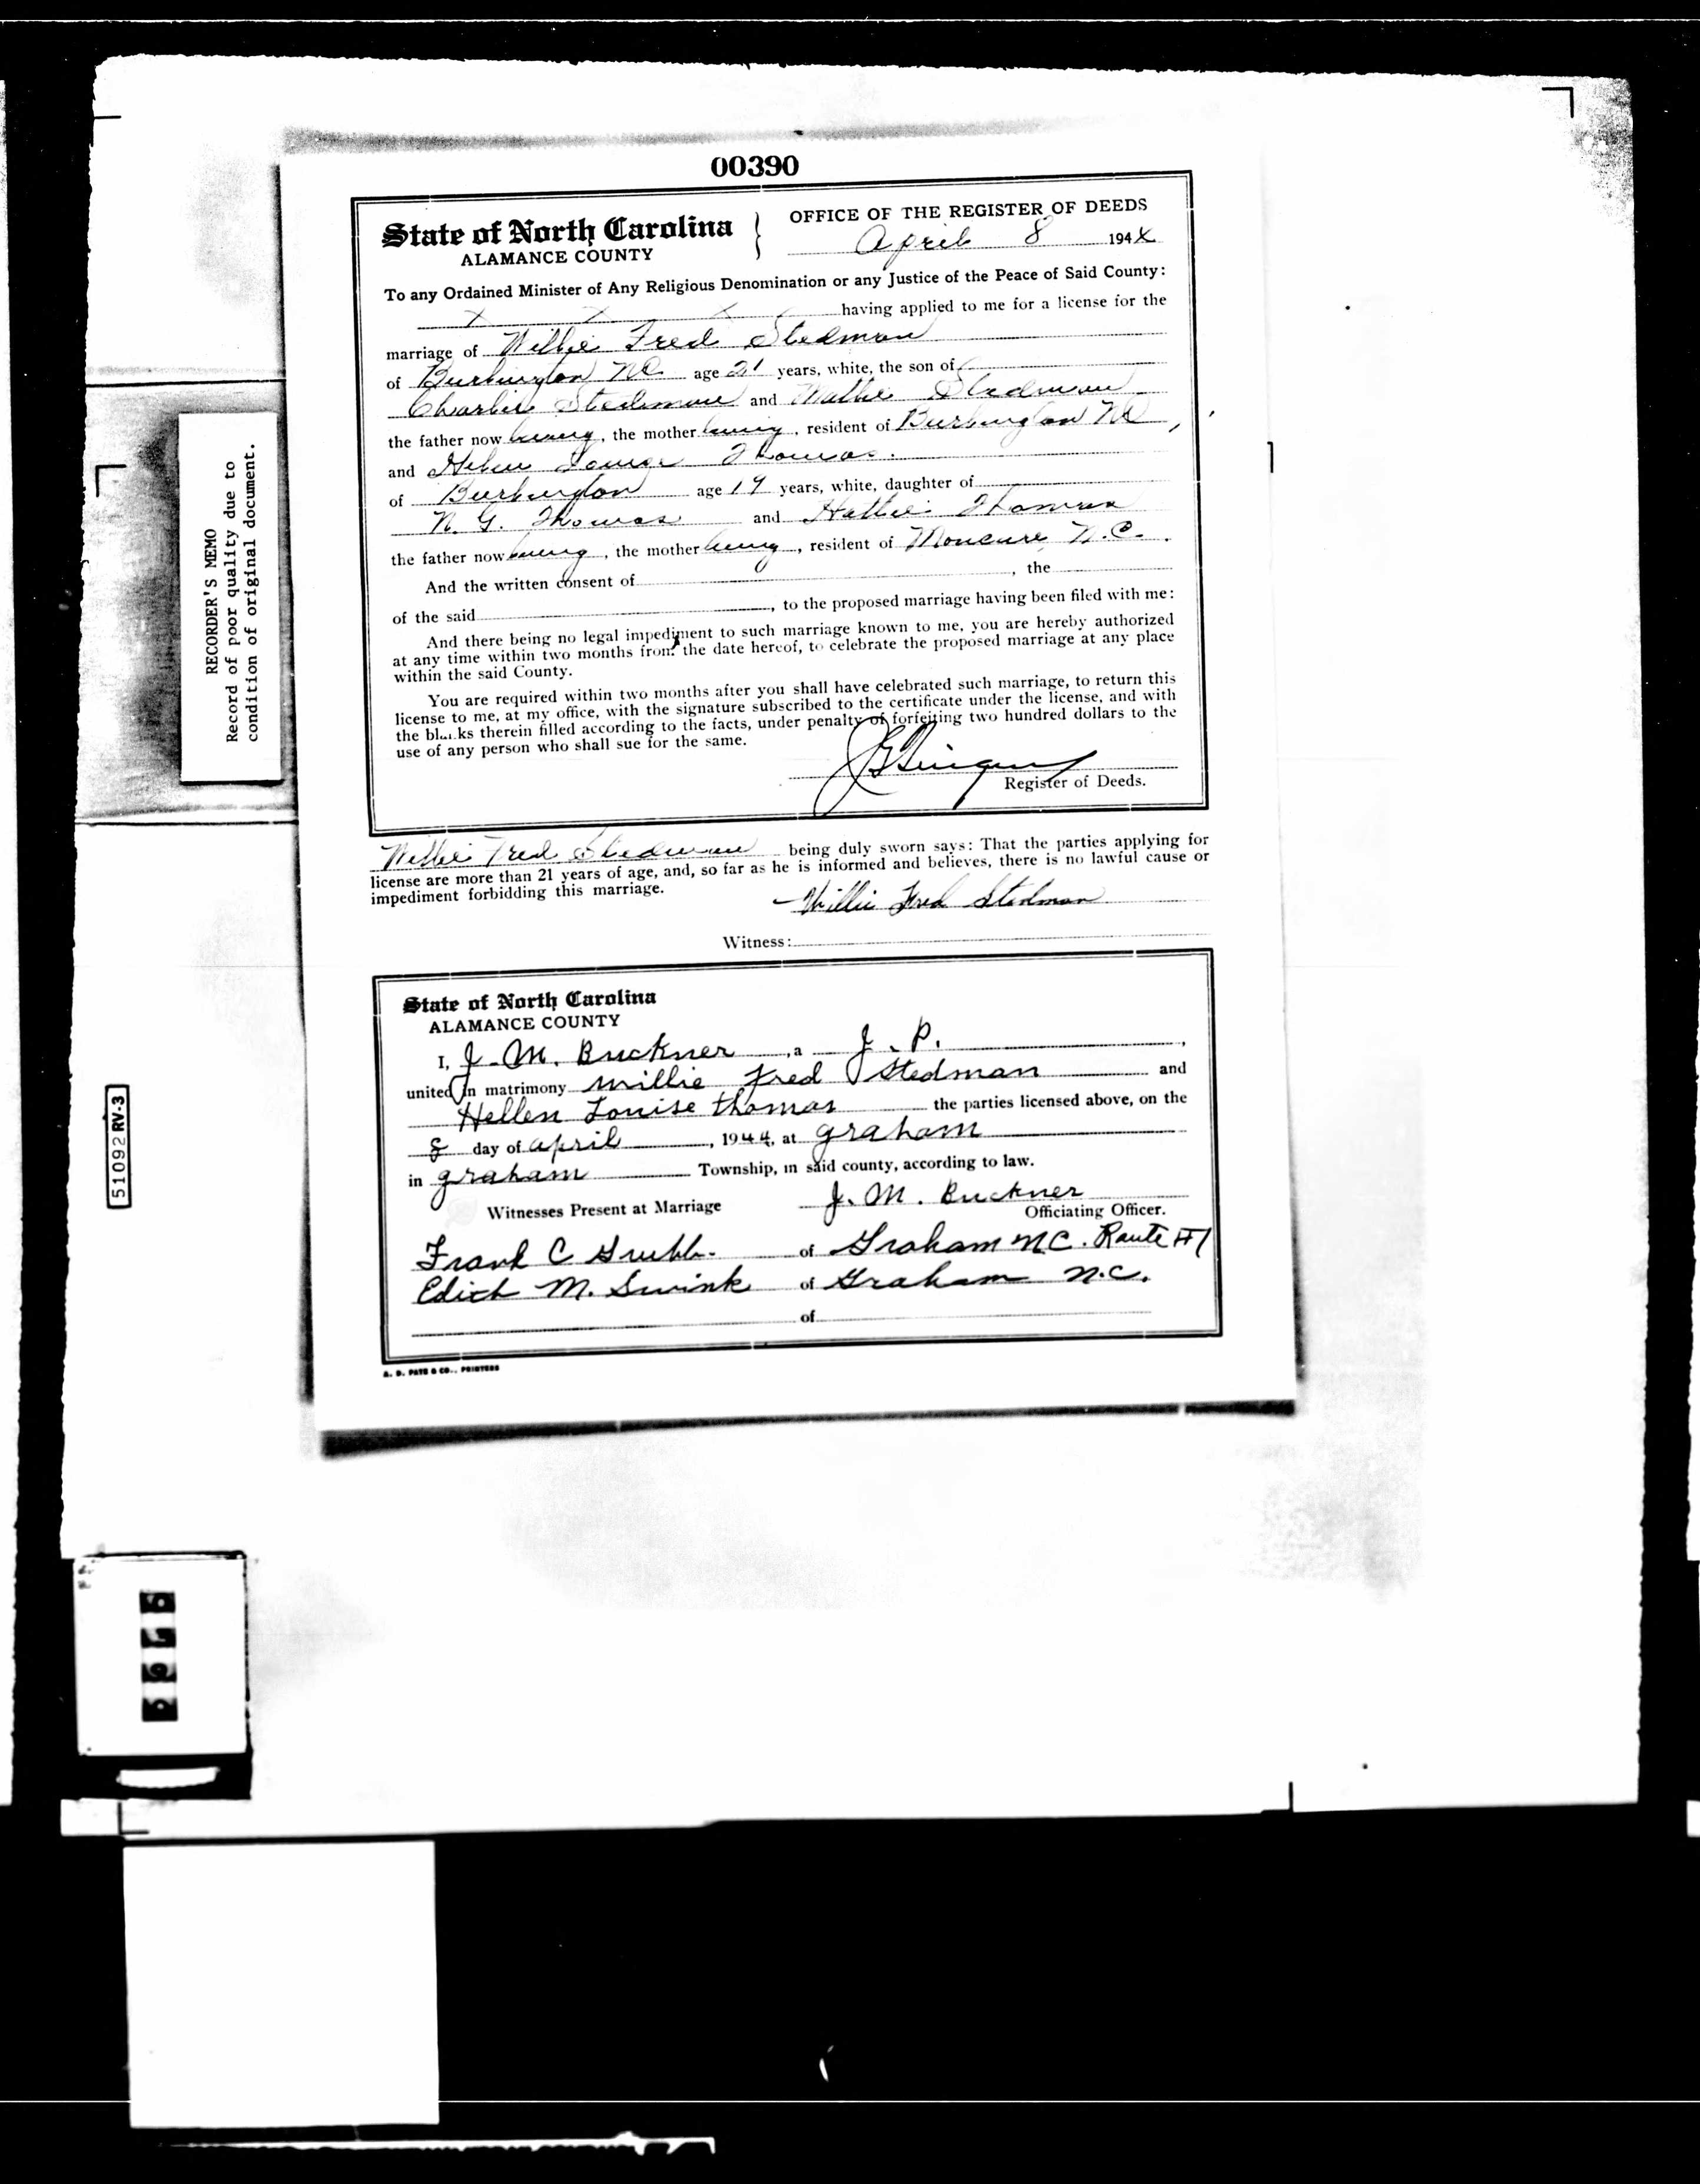 00390
State of North Carolina
ALAMANCE COUNTY
OFFICE OF THE REGISTER OF DEEDS
April 8 1944
To any Ordained Minister of Any Religious Denomination or any Justice of the Peace of Said County:
x x x x having applied to me for a license for the
marriage of Willie Fred Stedman
of Burlington NC age 21 years, white, the son of
Charlie Stedman and Mattie Stedman
the father now living, the mother living, resident of Burlington NC,
and Helen Louise Thomas.
of Burlington age 19 years, white, daughter of
N. G. Thomas and Hattie Thomas
the father now living, the mother living, resident of Moncure, N.C.
And the written consent of , the
of the said , to the proposed marriage having been filed with me:
And there being no legal impediment to such marriage known to me, you are hereby authorized
at any time within two months from the date hereof, to celebrate the proposed marriage at any place
within the said County.
You are required within two months after you shall have celebrated such marriage, to return this
license to me, at my office, with the signature subscribed to the certificate under the license, and with
the blanks therein filled according to the facts, under penalty of forfeiting two hundred dollars to the
use of any person who shall sue for the same.
Register of Deeds.
Willie Fred Stedman being duly sworn says: That the parties applying for
license are more than 21 years of age, and, so far as he is informed and believes, there is no lawful cause or
impediment forbidding this marriage.
Willie Fred Stedman
Witness:
State of North Carolina
ALAMANCE COUNTY
I, J. M. Buckner, a J. P.,
united in matrimony Willie Fred Stedman and
Hellen Louise Thomas the parties licensed above, on the
8 day of April, 1944, at Graham
in Graham Township, in said county, according to law.
J. M. Buckner
Witnesses Present at Marriage Officiating Officer.
Frank C Grubb. of Graham N.C. Route #1
Edith M. Swink of Graham N.C.
of
A. D. PATE & CO., PRINTERS
RECORDER'S MEMO
Record of poor quality due to
condition of original document.
51092 RV-3